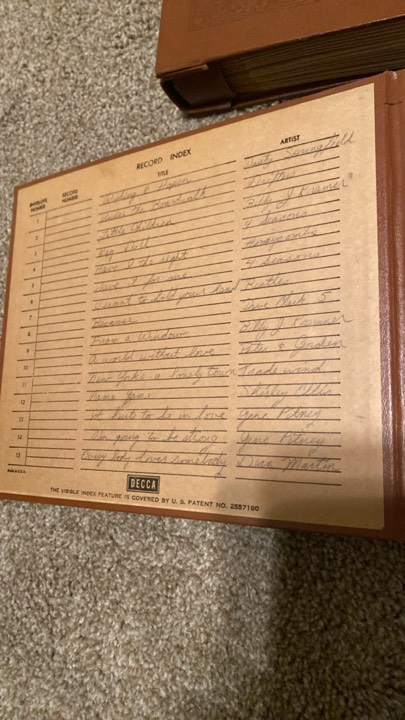 RECORD INDEX
ENVELOPE NUMBER RECORD NUMBER TITLE ARTIST
1 Wishing & Hopen Dusty Springfield
2 Under the Boardwalk Drifters
3 Little Children Billy J Kramer
4 Rag Doll 4 Seasons
5 Have I the right Honeycombs
6 Save it for me 4 Seasons
7 I want to hold your hand Beatles
8 Because Dave Clark 5
9 From a Window Billy J Kramer
10 A world without love Peter & Gordon
11 New York's a lonely town Tradewinds
12 Name Game Shirley Ellis
13 It hurts to be in love Gene Pitney
14 I'm going to be strong Gene Pitney
15 Every body loves somebody Dean Martin
Made in U.S.A. DECCA
THE VISIBLE INDEX FEATURE IS COVERED BY U. S. PATENT NO. 2557190